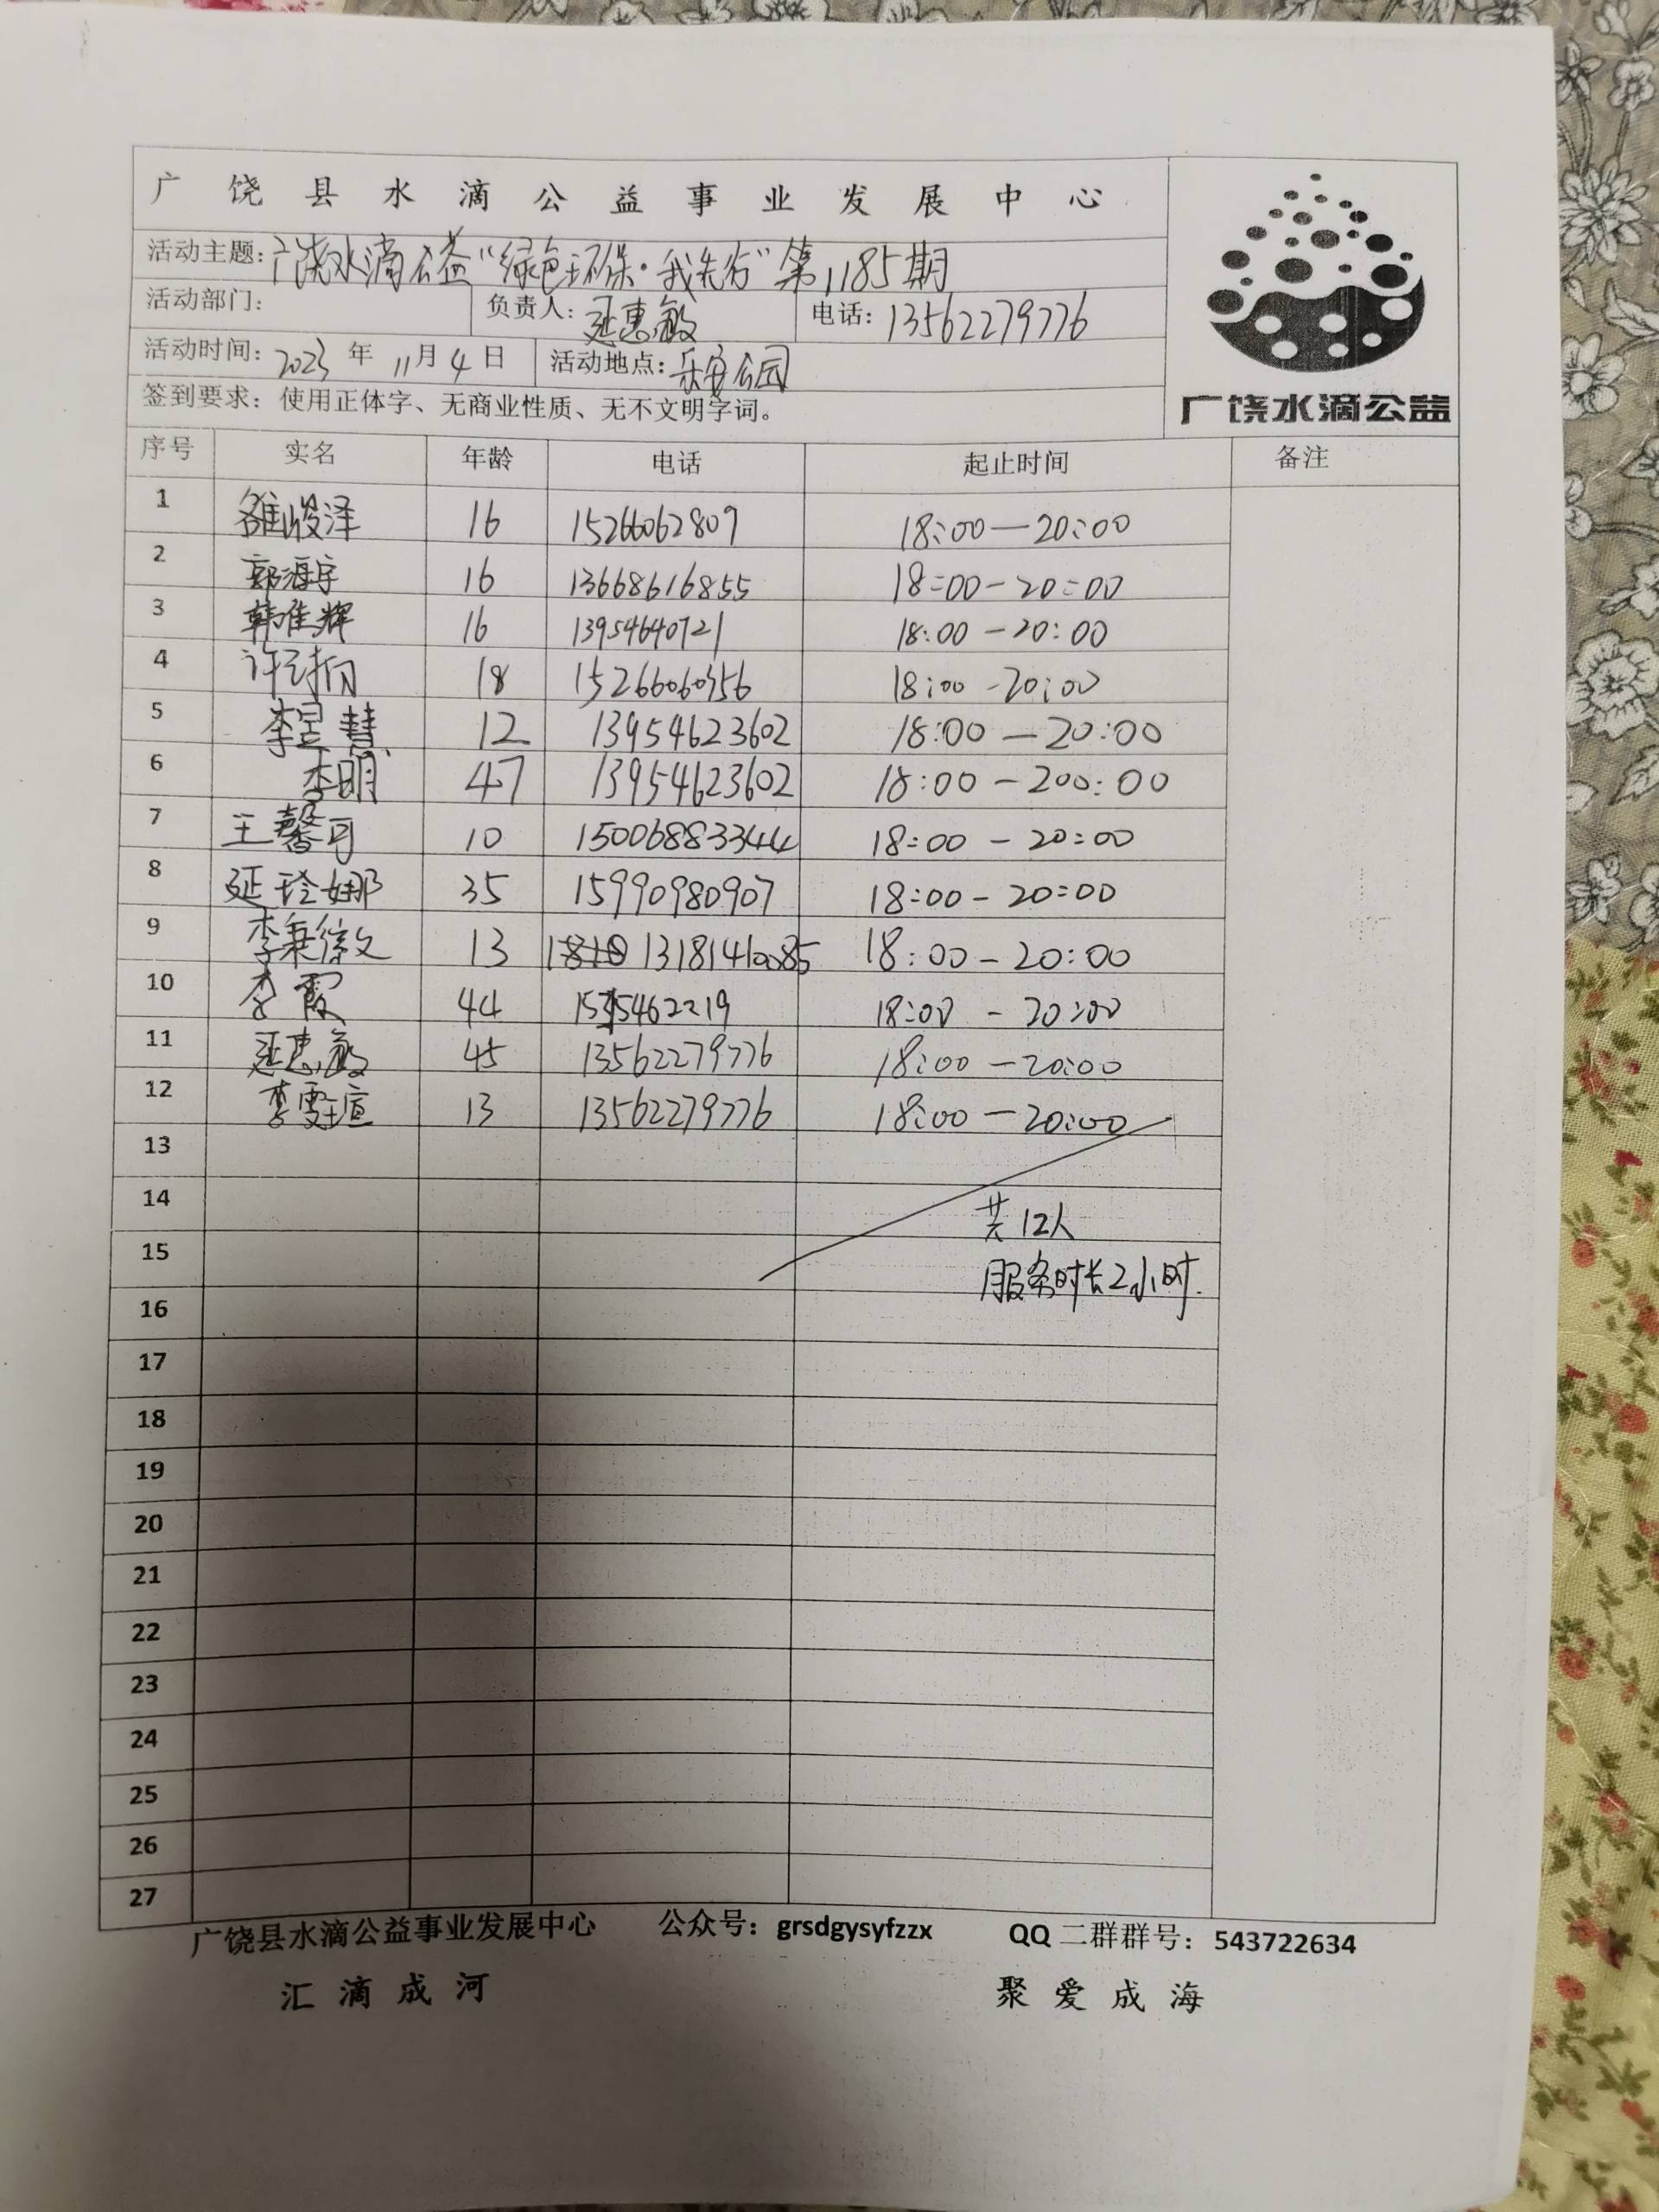 广饶县水滴公益事业发展中心
活动主题:广饶水滴公益“绿色环保·我先行”第1185期
活动部门: 负责人:延惠敏 电话:13562279776
活动时间:2023年11月4日 活动地点:乐安公园
签到要求:使用正体字、无商业性质、无不文明字词。
广饶水滴公益
序号 实名 年龄 电话 起止时间 备注
1 雒峻泽 16 15266062809 18:00—20:00
2 郭海宇 16 13668616855 18:00-20:00
3 韩唯辉 16 13954640721 18:00-20:00
4 18 18:00-20:00
5 李昱慧 12 13954623602 18:00—20:00
6 李明 47 13954623602 18:00-200:00
7 王馨可 10 15006883344 18:00-20:00
8 延玲娜 35 15990980907 18:00-20:00
9 李秉徽文 13 13181410085 18:00-20:00
10 李霞 44 18:00-20:00
11 延惠敏 45 13562279776 18:00—20:00
12 李雯瑄 13 13562279776 18:00—20:00
13
14 共12人
15 服务时长2小时.
16
17
18
19
20
21
22
23
24
25
26
27
广饶县水滴公益事业发展中心 公众号:grsdgysyfzzx QQ二群群号:543722634
汇滴成河 聚爱成海